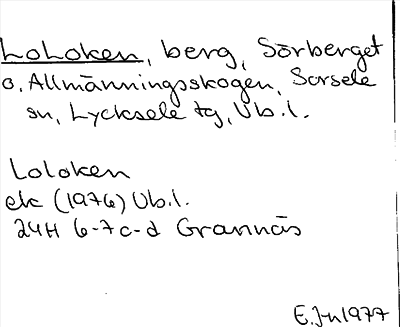 LoLoken, berg, Sörberget
o. Allmänningsskogen, Sorsele
sn, Lycksele tg, Vb.l.
Loloken
ek (1976) Vb.l.
24H 6-7c-d Grannäs
E.Jn1977